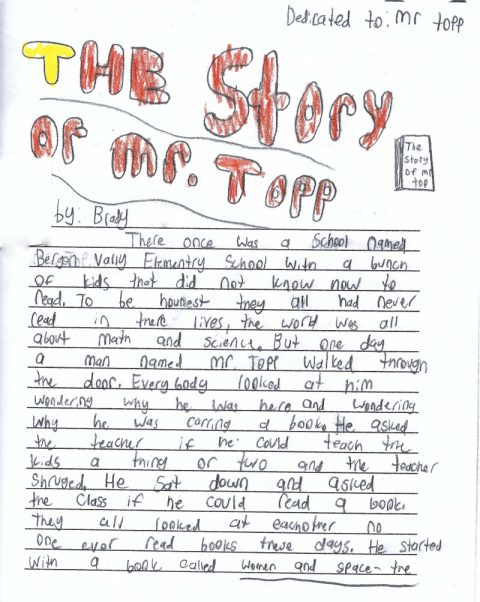 Dedicated to: mr topp
THE Story
OF mr. Topp
The
Story
OF mr
top
by: Brady
There once was a School named
Bergen Vally Elementry School with a bunch
of kids that did not know how to
read. To be houniest they all had never
read in there lives, the world was all
about math and science. But one day
a man named mr. Topp walked through
the door. Everybody looked at him
wondering why he was here and wondering
why he was carring a book. He asked
the teacher if he could teach the
kids a thing or two and the teacher
Shruged. He Sat down and asked
the class if he could read a book.
they all looked at eachother no
one ever read books these days. He started
with a book called women and space-the